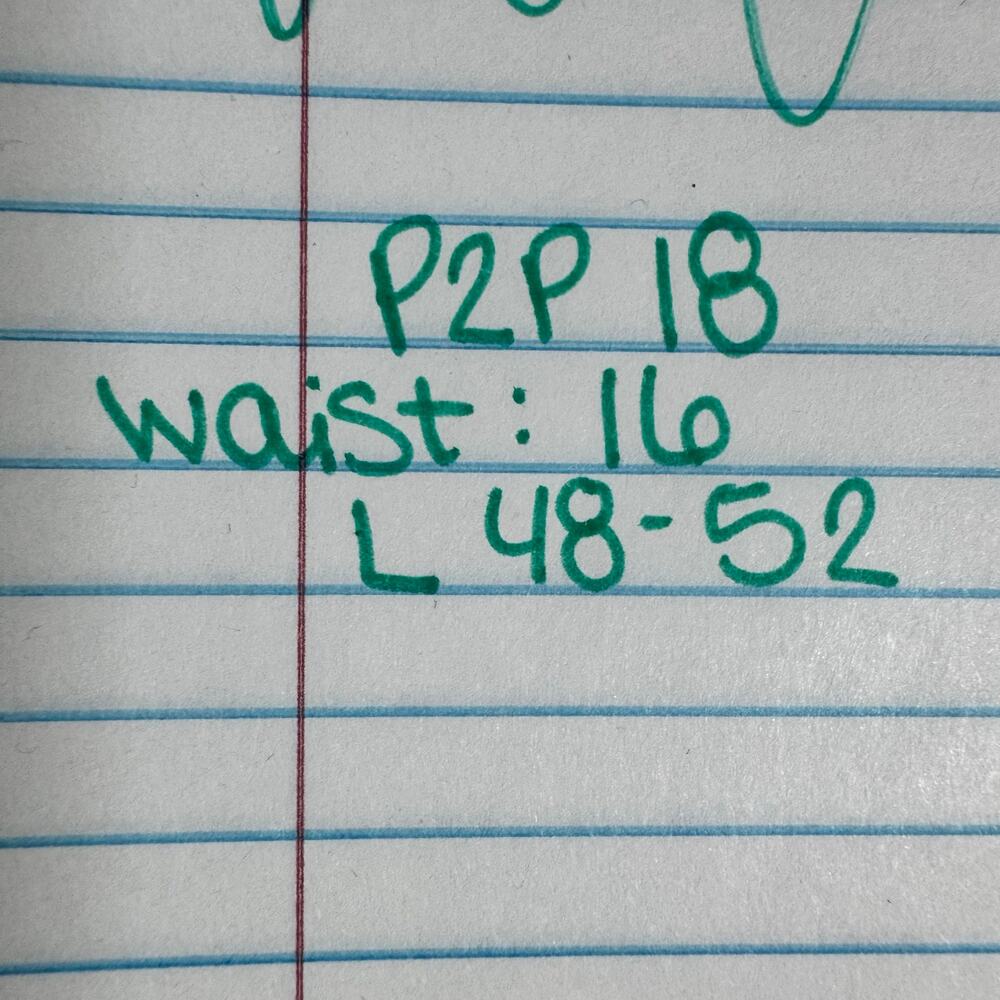 P2P 18
waist: 16
L 48-52